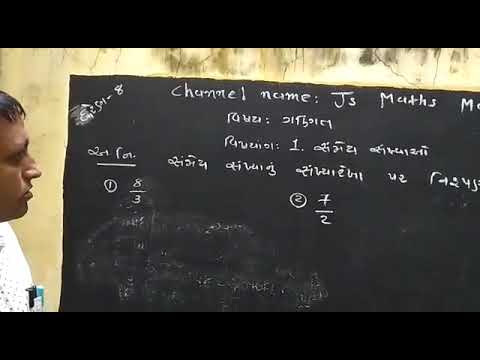 ધોરણ-8
Channel name: Js Maths Ma
વિષય: ગણિત
વિષયાંગ: 1. સંમેય સંખ્યાઓ
સંમેય સંખ્યાનું સંખ્યારેખા પર નિરૂપણ
① 8/3
② 7/2